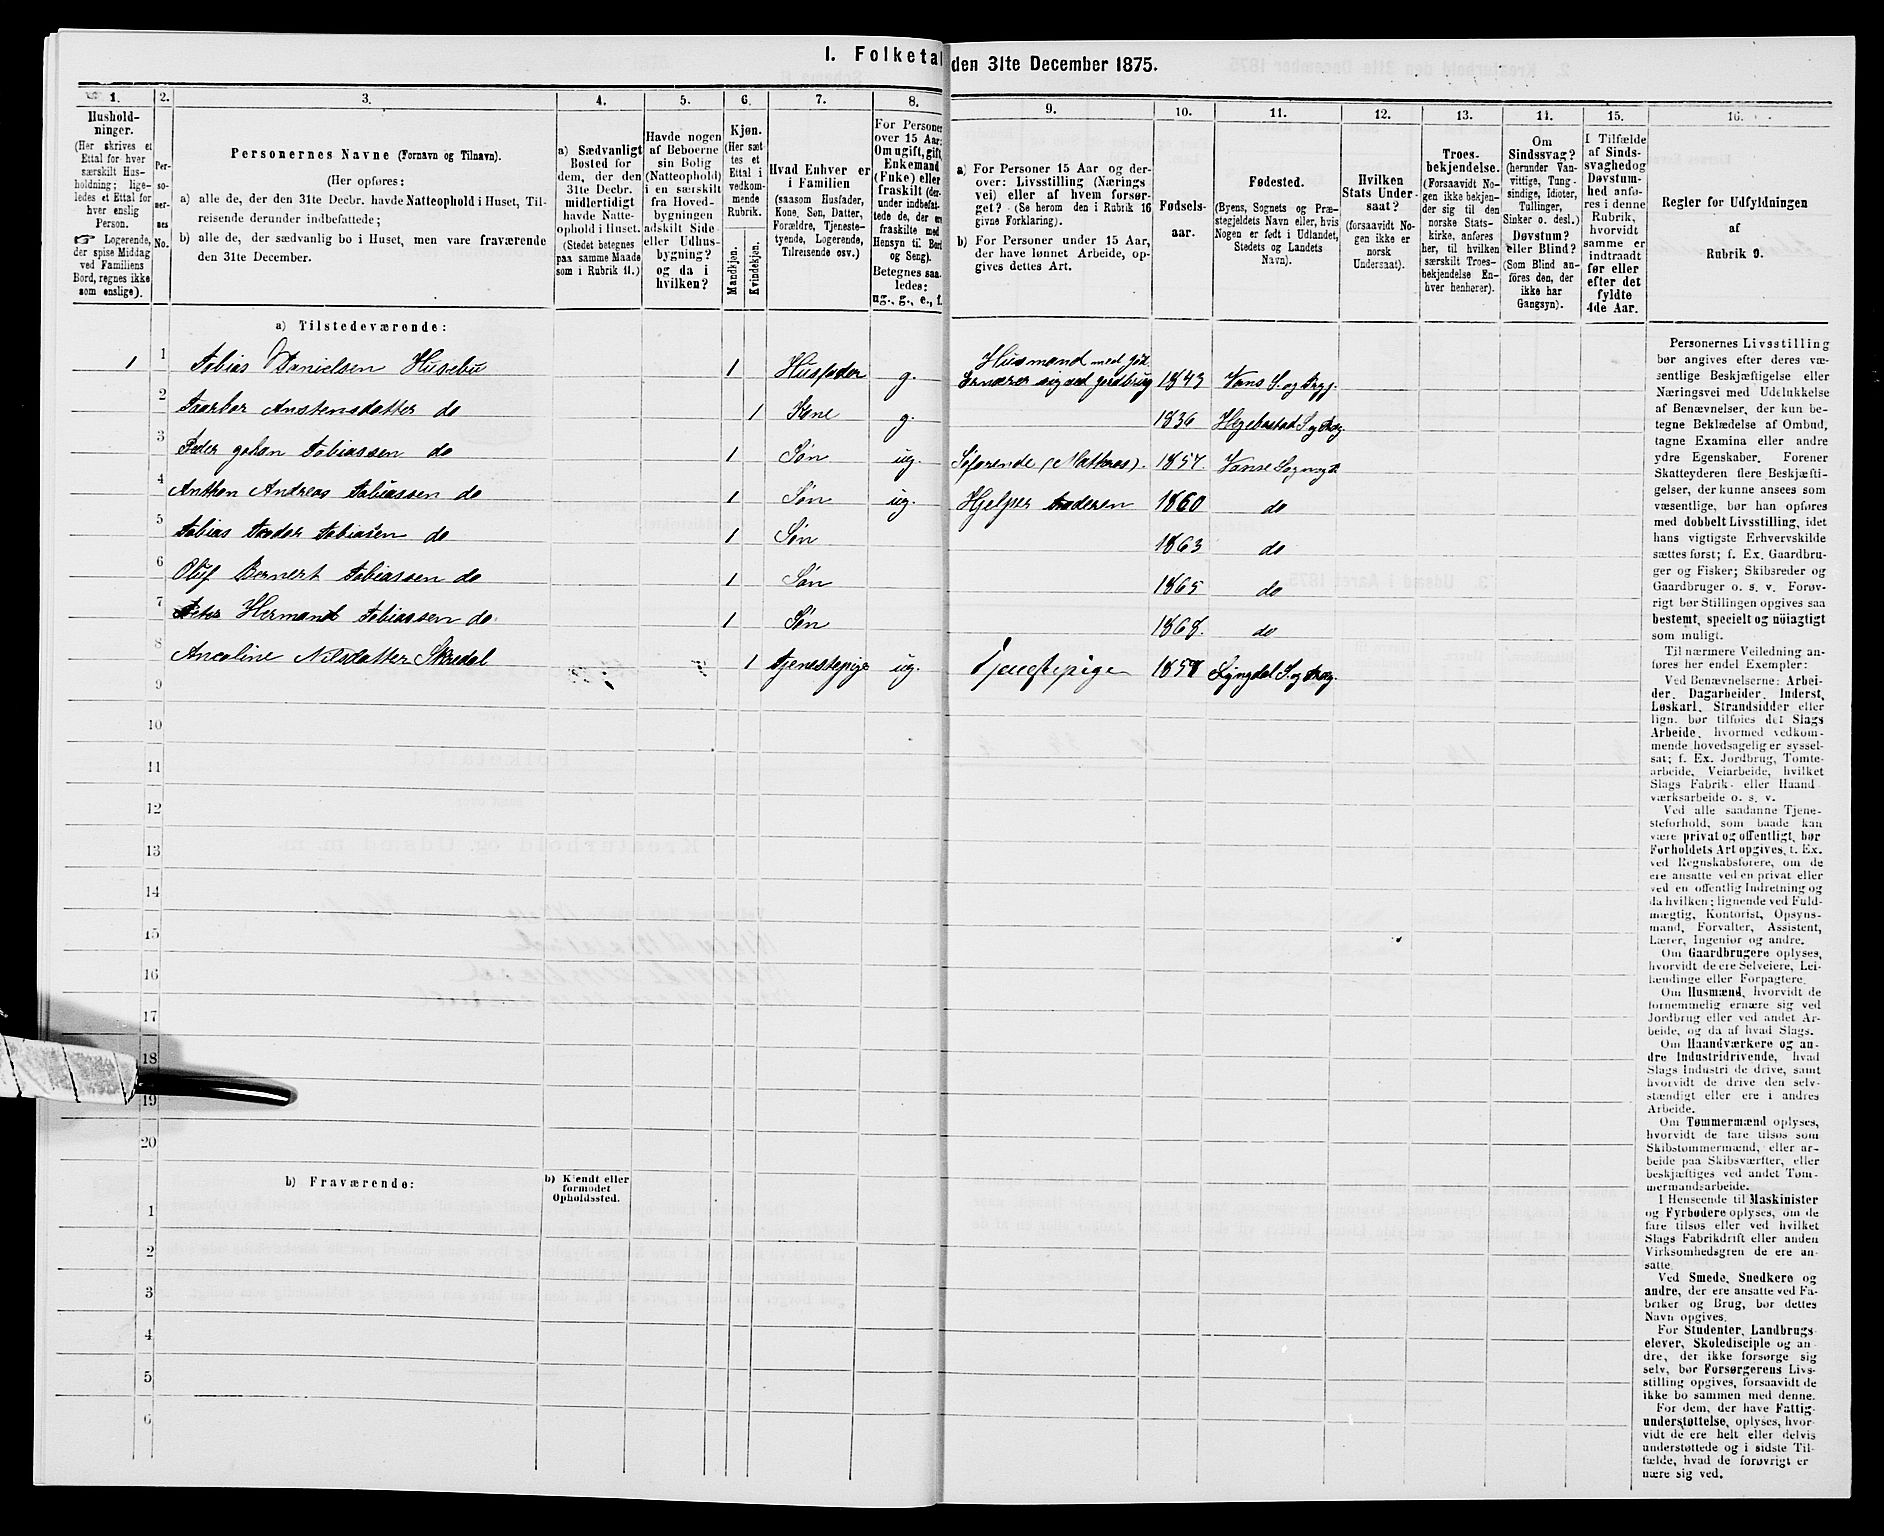 I. Folketal den 31te December 1875.
1.
Husholdninger.
(Her skrives et
Ettal for hver
særskilt Husholdning; ligeledes et Ettal for
hver enslig
Person.
☞ Logerende,
der spise Middag
ved Familiens
Bord, regnes ikke
som enslige).
2.
Personernes
No.
3.
Personernes Navne (Fornavn og Tilnavn).
(Her opføres:
a) alle de, der den 31te Decbr. havde Natteophold i Huset, Tilreisende derunder indbefattede;
b) alle de, der sædvanlig bo i Huset, men vare fraværende
den 31te December.
4.
a) Sædvanligt
Bosted for
dem, der den
31te Decbr.
midlertidigt
havde Natteophold i Huset.
(Stedet betegnes
paa samme Maade
som i Rubrik 11.)
5.
Havde nogen
af Beboerne
sin Bolig
(Natteophold)
i en særskilt
fra Hovedbygningen
adskilt Side-
eller Udhusbygning?
og da i
hvilken?
6.
Kjøn.
(Her sættes et
Ettal i
vedkommende
Rubrik.
Mandkjøn.
Kvindekjøn.
7.
Hvad Enhver er
i Familien
(saasom Husfader,
Kone, Søn, Datter,
Forældre, Tjenestetyende, Logerende,
Tilreisende osv.)
8.
For Personer
over 15 Aar:
Om ugift, gift,
Enkemand
(Enke) eller
fraskilt (derunder indbefattede de, der ere
fraskilte med
Hensyn til Bord
og Seng).
Betegnes saaledes:
ug., g., e., f.
9.
a) For Personer 15 Aar og derover: Livsstilling (Næringsvei) eller af hvem forsørget? (Se herom den i Rubrik 16
givne Forklaring).
b) For Personer under 15 Aar,
der have lønnet Arbeide, opgives dettes Art.
10.
Fødselsaar.
11.
Fødested.
(Byens, Sognets og Præstegjeldets Navn eller, hvis
Nogen er født i Udlandet,
Stedets og Landets
Navn).
12.
Hvilken
Stats Undersaat?
(forsaavidt Nogen ikke er
norsk
Undersaat).
13.
Troesbekjendelse.
(Forsaavidt Nogen ikke bekjender sig til den
norske Statskirke, anføres
her, til hvilken
særskilt Troesbekjendelse Enhver henhører).
14.
Om
Sindssvag?
(herunder Vanvittige, Tungsindige, Idioter,
Tullinger,
Sinker o. desl.)
Døvstum?
eller Blind?
(Som Blind anføres den, der
ikke har
Gangsyn).
15.
I Tilfælde
af Sindssvaghed og
Døvstumhed anføres i denne
Rubrik,
hvorvidt
samme er
indtraadt
før eller
efter det
fyldte
4de Aar.
16.
Regler for Udfyldningen
af
Rubrik 9.
a) Tilstedeværende:
1 1 Tobias Danielsen Husebu 1 Husfader g. Husmand med Jord Ernærer sig ved Jordbrug 1843 Vans S. og Prgj.
2 Taarbor Anstensdatter do 1 Kone g. 1836 Hegebostad S og Prg.
3 Peder Johan Tobiassen do 1 Søn ug. Søfarende (Matteros). 1857 Vanse Sogn
4 Anthon Andreas Tobiassen do 1 Søn ug. Hjelper Faderen 1860 do
5 Tobias Teodor Tobiasen do 1 Søn 1863 do
6 Oluf Bernert Tobiassen do 1 Søn 1865 do
7 Peter Hermand Tobiassen do. 1 Søn 1868. do
8 Ancoline Nilsdatter Skredal 1 Tjenestepige ug. Tjenestepige 1857 Lyngdal S. og Prg.
9
10
11
12
13
14
15
16
17
18
19
20
b) Fraværende:
b) Kjendt eller
formodet
Opholdssted.
1
2
3
4
5
6
Personernes Livsstilling
bør angives efter deres væsentlige Beskjæftigelse eller
Næringsvei med Udelukkelse
af Benævnelser, der kun betegne Beklædelse af Ombud,
tagne Examina eller andre
ydre Egenskaber. Forener
Skatteyderen flere Beskjæftigelser, der kunne ansees som
væsentlige, bør han opføres
med dobbelt Livsstilling, idet
hans vigtigste Erhvervskilde
sættes først; f. Ex. Gaardbruger og Fisker; Skibsreder og
Gaardbruger o. s. v. Forøvrigt bør Stillingen opgives saa
bestemt, specielt og nöiagtigt
som muligt.
Til nærmere Veiledning anføres her endel Exempler:
Ved Benævnelserne: Arbeider, Dagarbeider, Inderst,
Løskarl, Strandsidder eller
lign. bør tilføies det Slags
Arbeide, hvormed vedkommende hovedsagelig er sysselsat; f. Ex. Jordbrug, Tomtearbeide, Veiarbeide, hvilket
Slags Fabrik- eller Haandværksarbeide o. s. v.
Ved alle saadanne Tjenesteforhold, som baade kan
være privat og offentligt, bør
Forholdets Art opgives, f. Ex.
ved Regnskabsførere, om de
ere ansatte ved en privat eller
ved en offentlig Indretning og
da hvilken; lignende ved Fuldmægtig, Kontorist, Opsynsmand, Forvalter, Assistent,
Lærer, Ingeniør og andre.
Om Gaardbrugere oplyses,
hvorvidt de ere Selveiere, Leilændinge eller Forpagtere.
Om Husmænd, hvorvidt de
fornemmelig ernære sig ved
Jordbrug eller ved andet Arbeide, og da af hvad Slags.
Om Haandværkere og andre Industridrivende, hvad
Slags Industri de drive, samt
hvorvidt de drive den selvstændigt eller ere i andres
Arbeide.
Om Tømmermænd oplyses,
hvorvidt de fare tilsøs som
Skibstømmermænd, eller arbeide paa Skibsværfter, eller
beskjæftiges ved andet Tømmermandsarbeide.
I Henseende til Maskinister
og Fyrbødere oplyses, om de
fare tilsøs eller ved hvilket
Slags Fabrikdrift eller anden
Virksomhedsgren de ere ansatte.
Ved Smede, Snedkere og
andre, der ere ansatte ved Fabriker og Brug, bør dettes
Navn opgives.
For Studenter, Landbrugselever, Skoledisciple og andre, der ikke forsørge sig
selv, bør Forsørgerens Livsstilling opgives, forsaavidt de
ikke bo sammen med denne.
For dem, der have Fattigunderstøttelse, oplyses, hvorvidt de ere helt eller delvis
understøttede og i sidste Tilfælde, hvad de forøvrigt ernære sig ved.